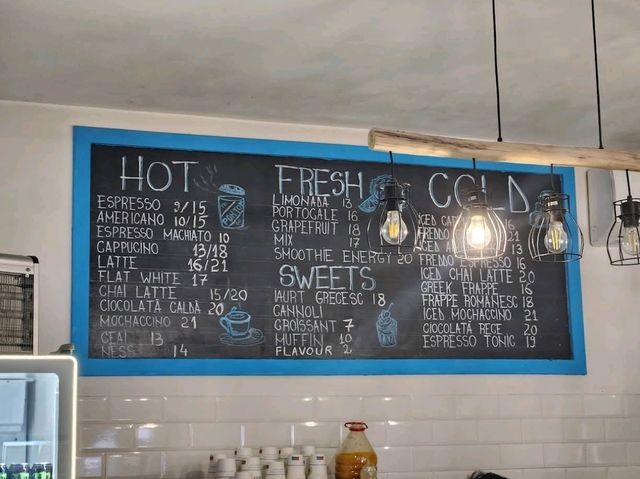 HOT
ESPRESSO 9/15
AMERICANO 10/15
ESPRESSO MACHIATO 10
CAPPUCINO 13/18
LATTE 16/21
FLAT WHITE 17
CHAI LATTE 15/20
CIOCOLATĂ CALDĂ 20
MOCHACCINO 21
CEAI 13
NESS 14
FRESH
LIMONADA 13
PORTOCALE 16
GRAPEFRUIT 18
MIX 17
SMOOTHIE ENERGY 20
SWEETS
IAURT GRECESC 18
CANNOLI
CROISSANT 7
MUFFIN 10
FLAVOUR 2
COLD
ICED
FREDDO
ICED
FREDDO ESPRESSO
ICED CHAI LATTE 20
GREEK FRAPPE 16
FRAPPE ROMANESC 18
ICED MOCHACCINO 21
CIOCOLATĂ RECE 20
ESPRESSO TONIC 19